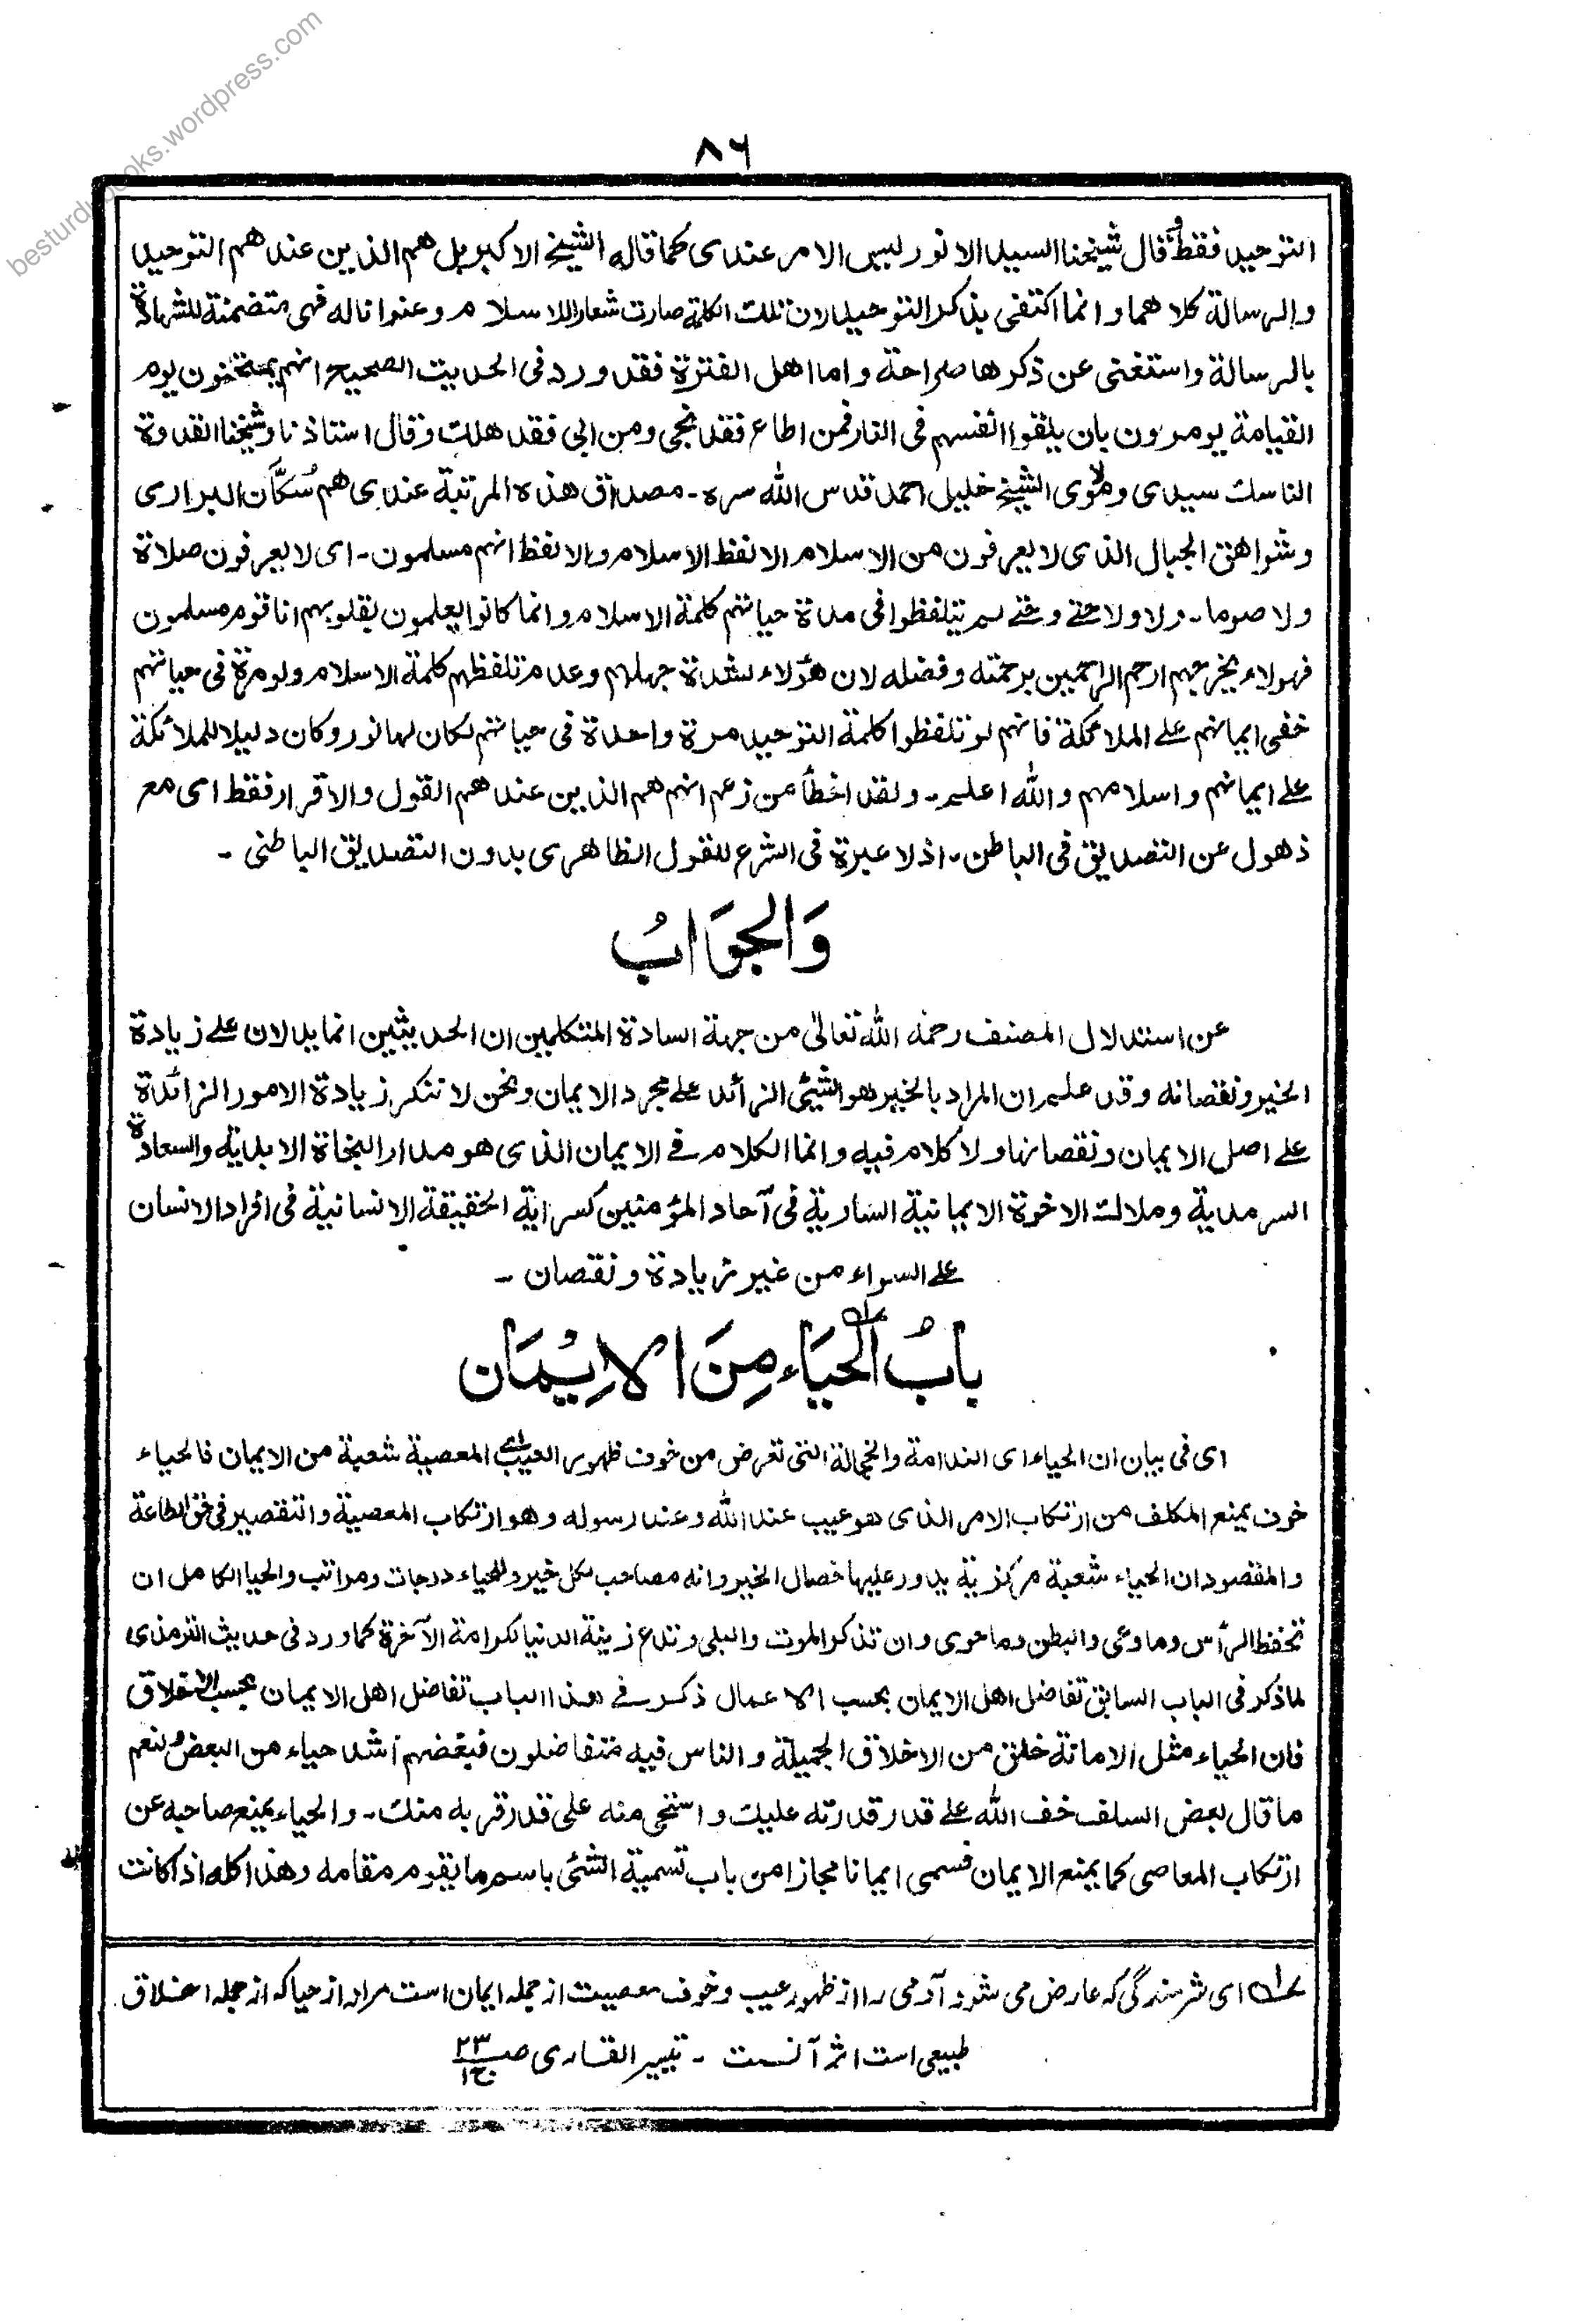 besturdubooks.wordpress.com
٨٦
التوحيد فقط وقال شيخنا السيد الانور ليس الامر عندى كما قاله الشيخ الاكبر بل هم الذين عندهم التوحيد
والرسالة كلاهما وانما اكتفى بذكر التوحيد لان تلك الكلمة صارت شعارا للاسلام وعنوانا له فهى متضمنة للشهادة
بالرسالة واستغنى عن ذكرها صراحة واما اهل الفترة فقد ورد فى الحديث الصحيح انهم يمتحنون يوم
القيامة يومرون بان يلقوا انفسهم فى النار فمن اطاع فقد نجى ومن ابى فقد هلك وقال استاذنا وشيخنا القدوة
الناسك سيدى ومولاى الشيخ خليل احمد قدس الله سره - مصداق هذه المرتبة عندى هم سُكَّان البرارى
وشواهق الجبال الذى لا يعرفون من الاسلام الا لفظ الاسلام والا لفظ انهم مسلمون - اى لا يعرفون صلاة
ولا صوما - ولا ولا حتے وحتے لم يتلفظوا فى مدة حياتهم كلمة الاسلام وانما كانوا يعلمون بقلوبهم انا قوم مسلمون
فهولاء يخرجهم ارحم الراحمين برحمته وفضله لان هؤلاء لشدة جهلهم وعدم تلفظهم كلمة الاسلام ولو مرة فى حياتهم
خفى ايمانهم علے الملائكة فانهم لو تلفظوا كلمة التوحيد مرة واحدة فى حياتهم لكان لها نور وكان دليلا للملائكة
علے ايمانهم واسلامهم والله اعلم - ولقد اخطأ من زعم انهم هم الذين عندهم القول والاقرار فقط اى مع
ذهول عن التصديق فى الباطن - اذ لا عبرة فى الشرع للقول الظاهرى بدون التصديق الباطنى -
وَالجوَابُ
عن استدلال المصنف رحمه الله تعالىٰ من جهة السادة المتكلمين ان الحديثين انما يدلان علے زيادة
الخير ونقصانه وقد علم ان المراد بالخير هو الشيئى الزائد علے مجرد الايمان ونحن لا ننكر زيادة الامور الزائدة
علے اصل الايمان ونقصانها ولا كلام فيه وانما الكلام فے الايمان الذى هو مدار النجاة الابدية والسعادة
السرمدية وملاك الاخوة الايمانية السارية فى آحاد المؤمنين كسراية الحقيقة الانسانية فى افراد الانسان
علے السواء من غير زيادة ونقصان -
بابُ الحيَاء مِنَ الاِيْمَان
اى فى بيان ان الحياء اى الندامة والخجالة التى تعرض من خوف ظهور العيب اے المعصية شعبة من الايمان فالحياء
خوف يمنع المكلف من ارتكاب الامر الذى هو عيب عند الله وعند رسوله وهو ارتكاب المعصية والتقصير فى حق الطاعة
والمقصود ان الحياء شعبة مركزية يدور عليها خصال الخير وانه مصاحب لكل خير وللحياء درجات ومراتب والحيا الكامل ان
تحفظ الرأس وما وعى والبطن وما حوى وان تذكر الموت والبلى وتدع زينة الدنيا لكرامة الآخرة كما ورد فى حديث الترمذى
لما ذكر فى الباب السابق تفاضل اهل الايمان بحسب الاعمال ذكر فے هذا الباب تفاضل اهل الايمان بحسب الاخلاق
فان الحياء مثل الامانة خلق من الاخلاق الجميلة والناس فيه متفاضلون فبعضهم اشد حياء من البعض ولنعم
ما قال بعض السلف خف الله علے قدر قدرته عليك واستحى منه على قدر قربه منك - والحياء يمنع صاحبه عن
ارتكاب المعاصى كما يمنع الايمان فسمى ايمانا مجازا من باب تسمية الشئى باسم ما يقوم مقامه وهذا كله اذا كانت
لہ اى شرمندگى كہ عارض مى شود آدمى را از ظهور عيب وخوف معصيت از جمله ايمان است مراد از حيا كہ از جمله اخلاق
طبيعى است اثر آنست - تيسير القارى صـ ٢٣ ج ١